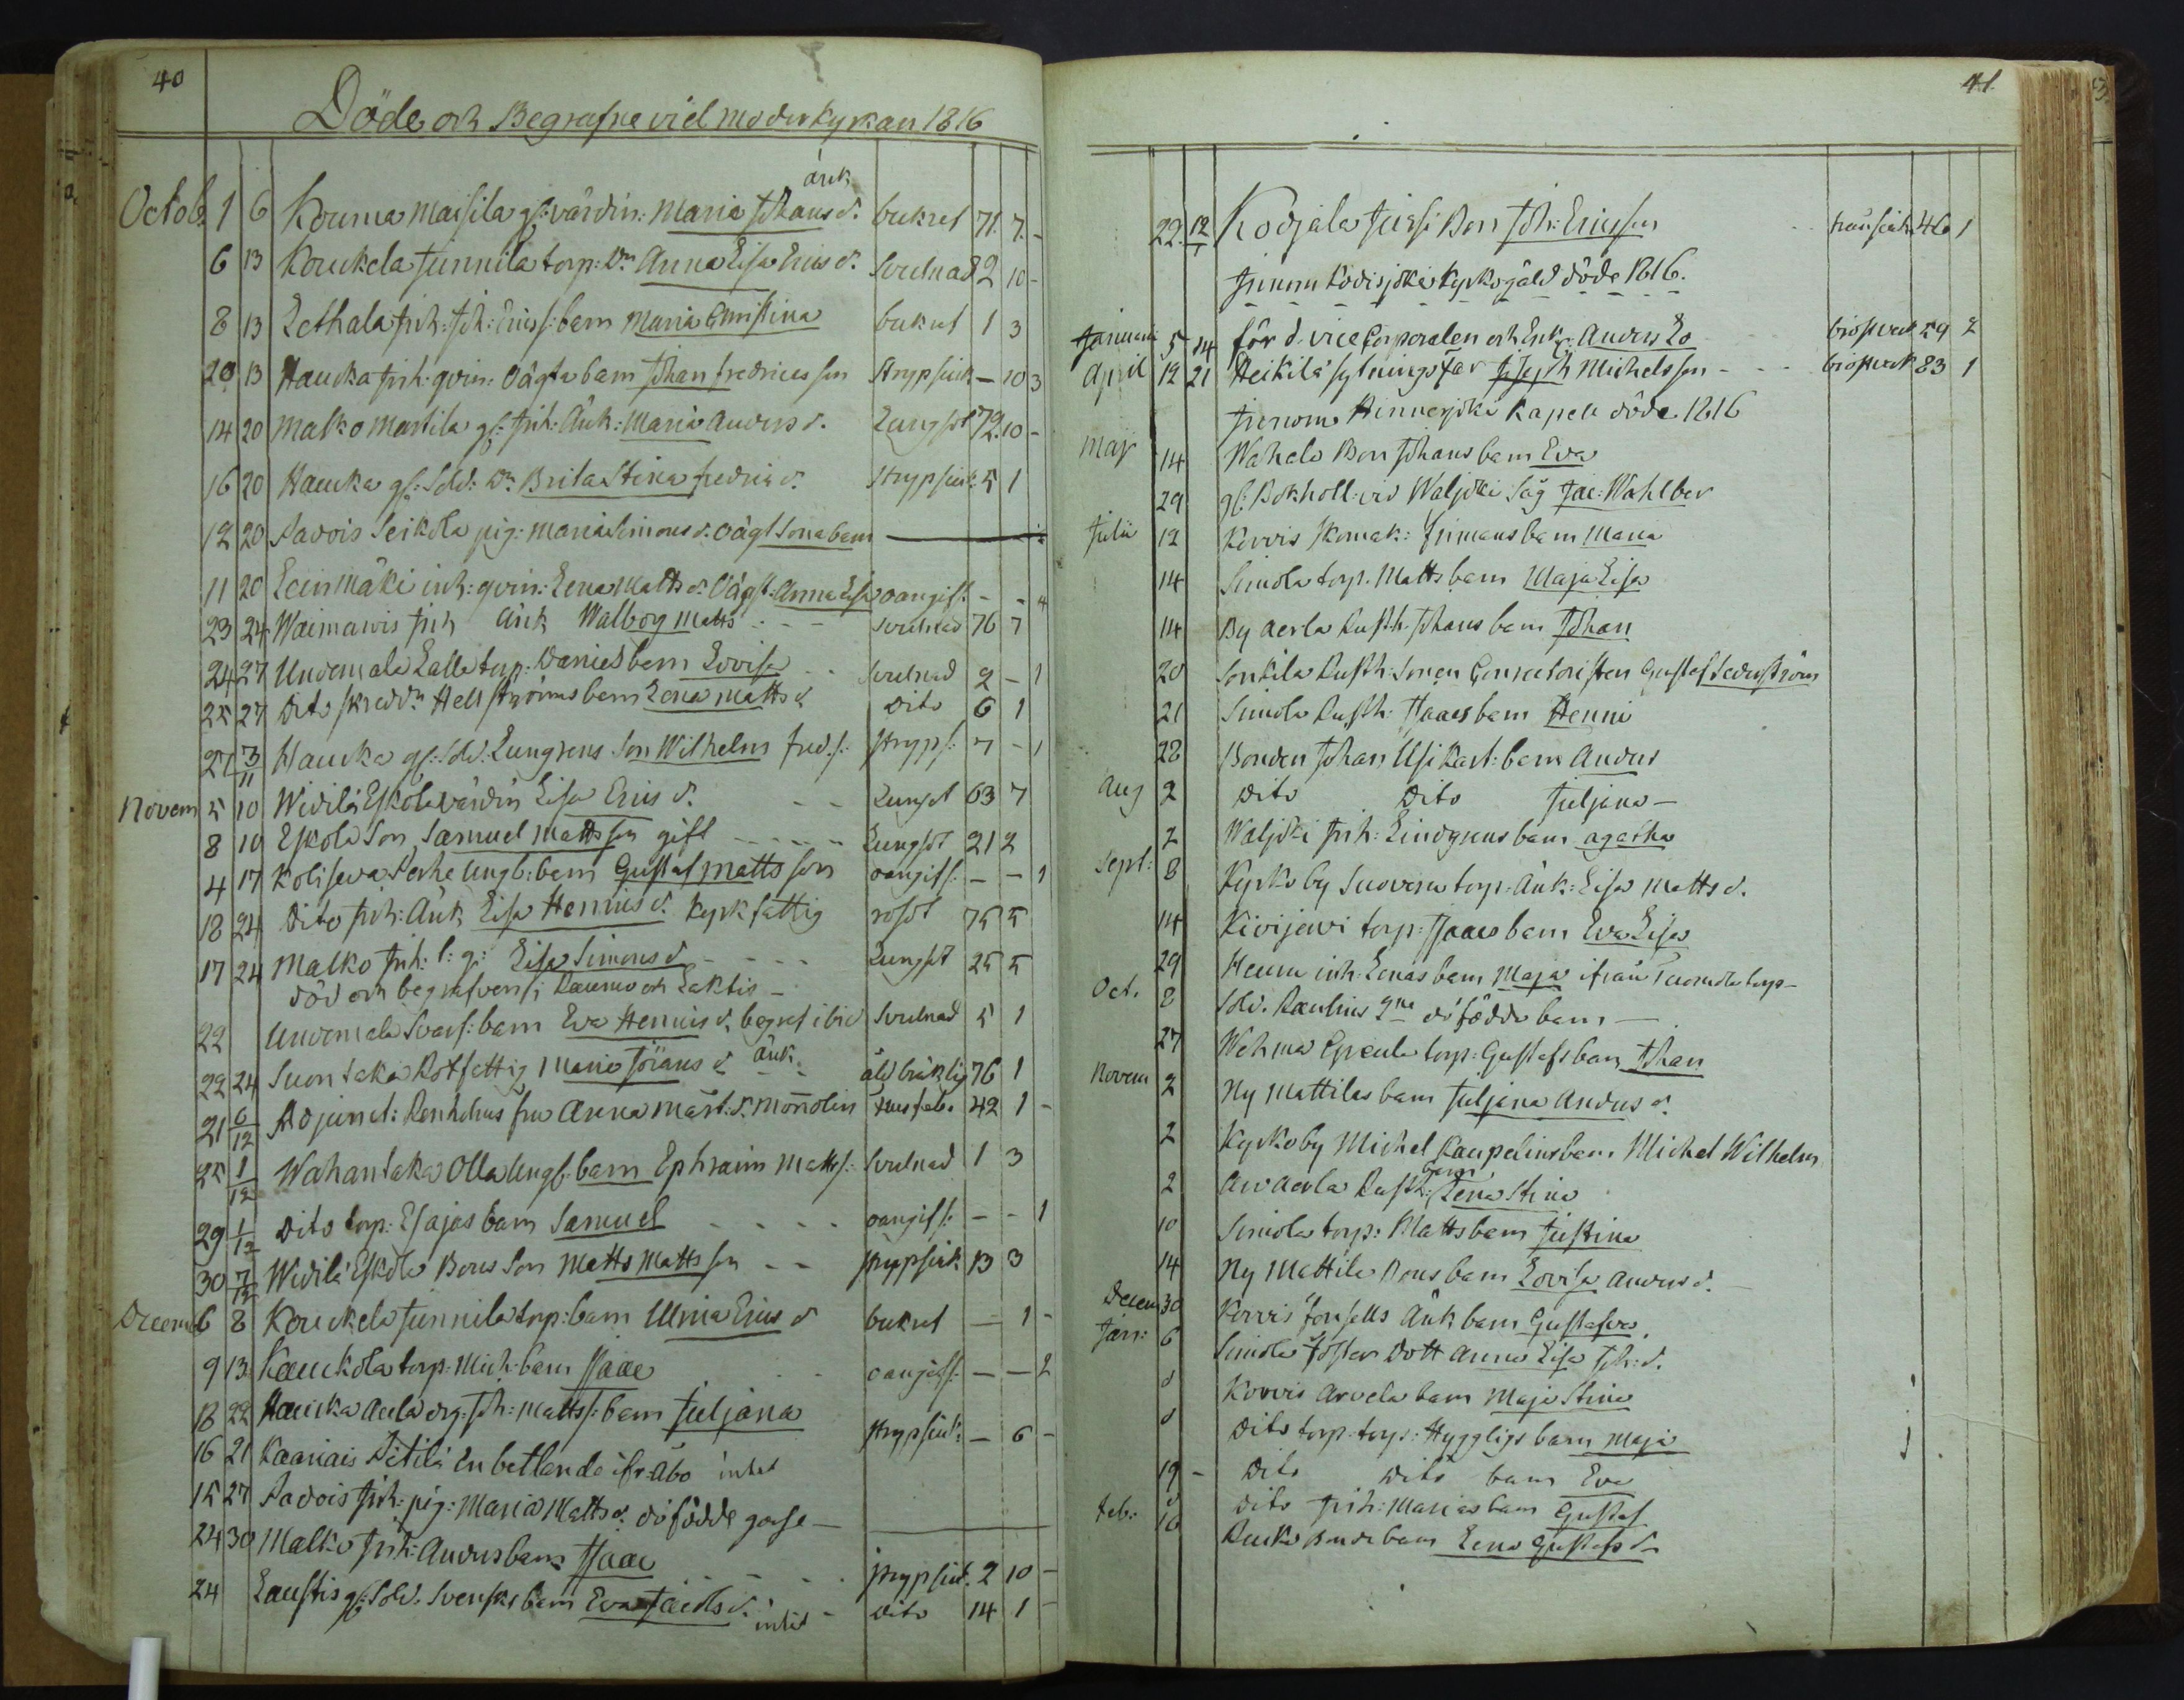 40
Döde och Begrafne vid moderkyrkan 1816
änk
Octob. 1 6 Kouma Maisila gl: värdin: Maria Johans d. bukref 71. 7. -
6 13 Kouckela Junnila torp: Dr Anna Lisa Erics d. Svulnad 2 10 -
8 13 Lethala Inh: Joh: Ericss: barn Maria Christina bukref 1 3
20 13 Haucka Inh: qvin: Oägta barn Johan Fredricsson Strypsiuk - 10 3
14 20 Malko Martila gl: Inh: Änk: Maria Anders d. Lungsot 72. 10 -
16 20 Haucka gl: Sold: Dr Brita Stina Fredrics d. Strypsiuk 5 1
12 20 Sadois Seikola pig: Maria Simons d. oägt Sona barn
11 20 Leinmäki inh: qvin: Lena Matts d. Oägt: Anna Lisa oangif: - - 4
23 24 Waimaris Inh Änk Walborg Matts - - - Svulnad 76 7
24 27 Undemala Lalla torp: Daniels barn Lovisa - - Svulnad 2 - 1
25 27 Dito skreddr Hellströms barn Lena Matts d Dito 6 1
27 3/11 Haucka gl: Sold. Lungrens Son Wilhelm Fred.s: Stryps: 7 - 1
Novem 5 10 Widilä Eskola värdin Lisa Erics d. - - Lungsot 63 7
8 10 Eskola Son Samuel Mattsson gift - - - - Lungsot 21 2
4 17 Kolisewa Perhe Ungb: barn Gustaf Mattsson oangif: - - 1
18 24 Dito Inh: Änk Lisa Henrics d. kyrkfattig rosot 75 5
17 24 Malko Inh: l: g: Lisa Simons d - - - - Lungsot 25 5
död och begrafven i Raumo och Laktis -
22 Undemala Svars: barn Eva Henrics d. begraf ibid Svulnad 5 1
22 24 Suontaka Rotfattig Maria Jörans d änk. ålderbräklig 76 1
21 6/12 Adjunct: Renthelius fru Anna Mårt: d. Monolin 42 1 -
25 1/12 Wahantaka Olla Ungb. barn Ephraim Matts: Svulnad 1 3
29 1/12 Dito torp: Esajas barn Samuel - - - - oangif: - - 1
30 7/12 Widilä Eskola Bons Son Matts Mattsson - - strypsiuk 13 3
Decem 6 8 Kouckela Junnila torp: barn Ulrica Erics d bukref - 1 -
9 13 Kauckola torp: Mich: barn Isaac oangif: - - 2
18 22 Haucka Aula drg: Joh: Matts: barn Juljana Strypsiuk: - 6 -
16 21 Kaariais Pitilä En betlande ifr: Åbo intet
15 27 Sadois Inh: pig: Maria Matts d. dödfödde gosse -
24 30 Malko Inh: Anders barn Isaac strypsiuk. 2 10 -
24 Laustis gl: Sold. Svensks barn Eva Jacobs d. intet - Dito 14 1 -
41.
22 12/1 Kodjala Jussi Bon Joh: Ericsson 46 1
Innom Kodisjoki kyrkogäld döde 1816.
Januari 5 14 för d. vice Corporalen och Enk: Anders Lo bröstverk 29 2
April 12 21 Heikilä sytningsfar Joseph Michelsson - - - bröstverk 83 1
Inenom Hinnerjoki Kapell döde 1816
Maji 14 Wahalo Bon Johans barn Eva
29 gl: Bokhåll: vid Waljoki Såg Jac: Wahlber
Julii 12 Korvis skomak: Frimans barn Maria
14 Simola torp. Matts barn Maja Lisa
14 By Aerla Rusth. Johans barn Johan
20 Sonkila Rusth: Sonen Consistoristen Gustaf Sederström
21 Simola Rusth: Isaacs barn Henric
28 Bonden Johan Usikart: barn Anders
Aug 2 Dito Dito Juljana -
2 Waljoki Inh: Lindgrens barn Agatha
Sept: 8 Kyrkoby Suovena torp: Änk: Lisa Matts d.
14 Kivijervi torp: Isaacs barn Eva Lisa
29 Heuru inh: Lenas barn Maja ifrån Tuomola torp -
Oct. 8 Sold. Raulins 2ne dödfödde barn -
27 Wehma Epeula torp: Gustafs barn Johan
Novem 2 Ny Mattilas barn Juljana Anders d.
2 Kyrkoby Michel Kaupelins barn Michel Wilhelm
2 Arvaerla Rusth: barn Lena Stina
10 Simola torp: Matts barn Justina
14 Ny Mattila Bons barn Lovisa Anders d.
Decem 30 Korvis Forssells Änk barn Gustafva
Jan: 6 Simola foster Dott Anna Lisa Joh: d.
8 Korvis Arvela barn Maja Stina
8 Dito torp: torp: Hyggligs barn Maja
19 - Dito Dito barn Eva
8 Dito Inh: Marias barn Gustaf
Feb: 10 Rucko Bonde barn Lena Gustafs d